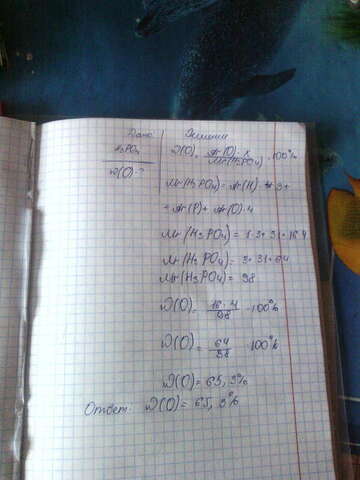 Дано: Решение
H₃PO₄ ω(O) = Ar(O)·x / Mr(H₃PO₄) · 100%
ω(O)-?
Mr(H₃PO₄) = Ar(H)·3+
+Ar(P)+Ar(O)·4
Mr(H₃PO₄) = 1·3+31+16·4
Mr(H₃PO₄) = 3+31+64
Mr(H₃PO₄) = 98
ω(O) = 16·4 / 98 ·100%
ω(O) = 64 / 98 100%
ω(O) = 65,3%
Ответ: ω(O) = 65,3%